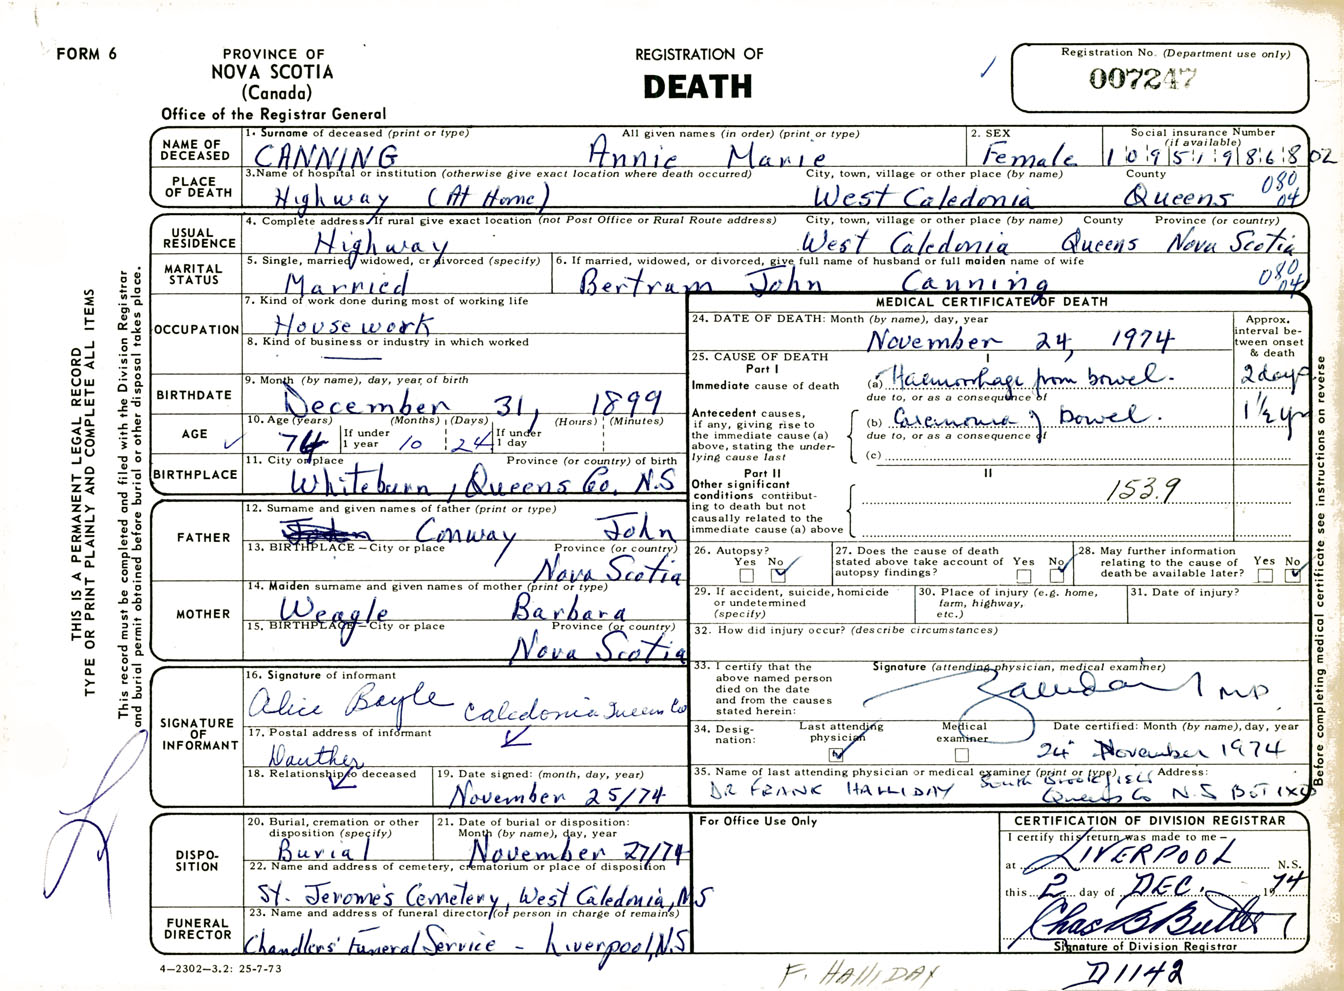 FORM 6
PROVINCE OF
NOVA SCOTIA
(Canada)
Office of the Registrar General
REGISTRATION OF
DEATH
Registration No. (Department use only)
007247
NAME OF DECEASED
1. Surname of deceased (print or type) All given names (in order) (print or type) 2. SEX Social insurance Number (if available)
CANNING Annie Marie Female 109519868 02
PLACE OF DEATH
3. Name of hospital or institution (otherwise give exact location where death occurred) City, town, village or other place (by name) County
Highway (At Home) West Caledonia Queens 080 04
USUAL RESIDENCE
4. Complete address. If rural give exact location (not Post Office or Rural Route address) City, town, village or other place (by name) County Province (or country)
Highway West Caledonia Queens Nova Scotia
MARITAL STATUS
5. Single, married, widowed, or divorced (specify) 6. If married, widowed, or divorced, give full name of husband or full maiden name of wife
Married Bertram John Canning 080 04
OCCUPATION
7. Kind of work done during most of working life
Housework
8. Kind of business or industry in which worked
BIRTHDATE
9. Month (by name), day, year of birth
December 31, 1899
AGE
10. Age (years) (Months) (Days) (Hours) (Minutes)
74 If under 1 year 10 24 If under 1 day
BIRTHPLACE
11. City or place Province (or country) of birth
Whiteburn, Queens Co. N.S
FATHER
12. Surname and given names of father (print or type)
Conway John
13. BIRTHPLACE - City or place Province (or country)
Nova Scotia
MOTHER
14. Maiden surname and given names of mother (print or type)
Weagle Barbara
15. BIRTHPLACE - City or place Province (or country)
Nova Scotia
SIGNATURE OF INFORMANT
16. Signature of informant
Alice Boyle Caledonia Queens Co
17. Postal address of informant
Dauther
18. Relationship to deceased 19. Date signed: (month, day, year)
November 25/74
DISPOSITION
20. Burial, cremation or other disposition (specify) 21. Date of burial or disposition: Month (by name), day, year
Burial November 27/74
22. Name and address of cemetery, crematorium or place of disposition
St. Jerome's Cemetery, West Caledonia, N.S
FUNERAL DIRECTOR
23. Name and address of funeral director (or person in charge of remains)
Chandlers' Funeral Service - Liverpool, N.S
4-2302-3.2: 25-7-73
MEDICAL CERTIFICATE OF DEATH
24. DATE OF DEATH: Month (by name), day, year
November 24, 1974
Approx. interval between onset & death
25. CAUSE OF DEATH I
Part I
Immediate cause of death (a) Haemorrhage from bowel. 2 days
due to, or as a consequence of
Antecedent causes, if any, giving rise to the immediate cause (a) above, stating the underlying cause last
(b) Carcinoma of bowel. 1 ½ yr
due to, or as a consequence of
(c)
Part II II
Other significant conditions contributing to death but not causally related to the immediate cause (a) above
153.9
26. Autopsy? Yes No
27. Does the cause of death stated above take account of autopsy findings? Yes No
28. May further information relating to the cause of death be available later? Yes No
29. If accident, suicide, homicide or undetermined (specify)
30. Place of injury (e.g. home, farm, highway, etc.)
31. Date of injury?
32. How did injury occur? (describe circumstances)
33. I certify that the above named person died on the date and from the causes stated herein:
Signature (attending physician, medical examiner)
MD
34. Designation: Last attending physician Medical examiner Date certified: Month (by name), day, year
24 November 1974
35. Name of last attending physician or medical examiner (print or type) Address:
DR FRANK HALLIDAY South Brookfield Queens Co N.S
For Office Use Only
CERTIFICATION OF DIVISION REGISTRAR
I certify this return was made to me -
at LIVERPOOL N.S.
this 2 day of DEC. 1974
Chas B Butler
Signature of Division Registrar
F. HALLIDAY
D1142
THIS IS A PERMANENT LEGAL RECORD
TYPE OR PRINT PLAINLY AND COMPLETE ALL ITEMS
This record must be completed and filed with the Division Registrar
and burial permit obtained before burial or other disposal takes place.
Before completing medical certificate see instructions on reverse